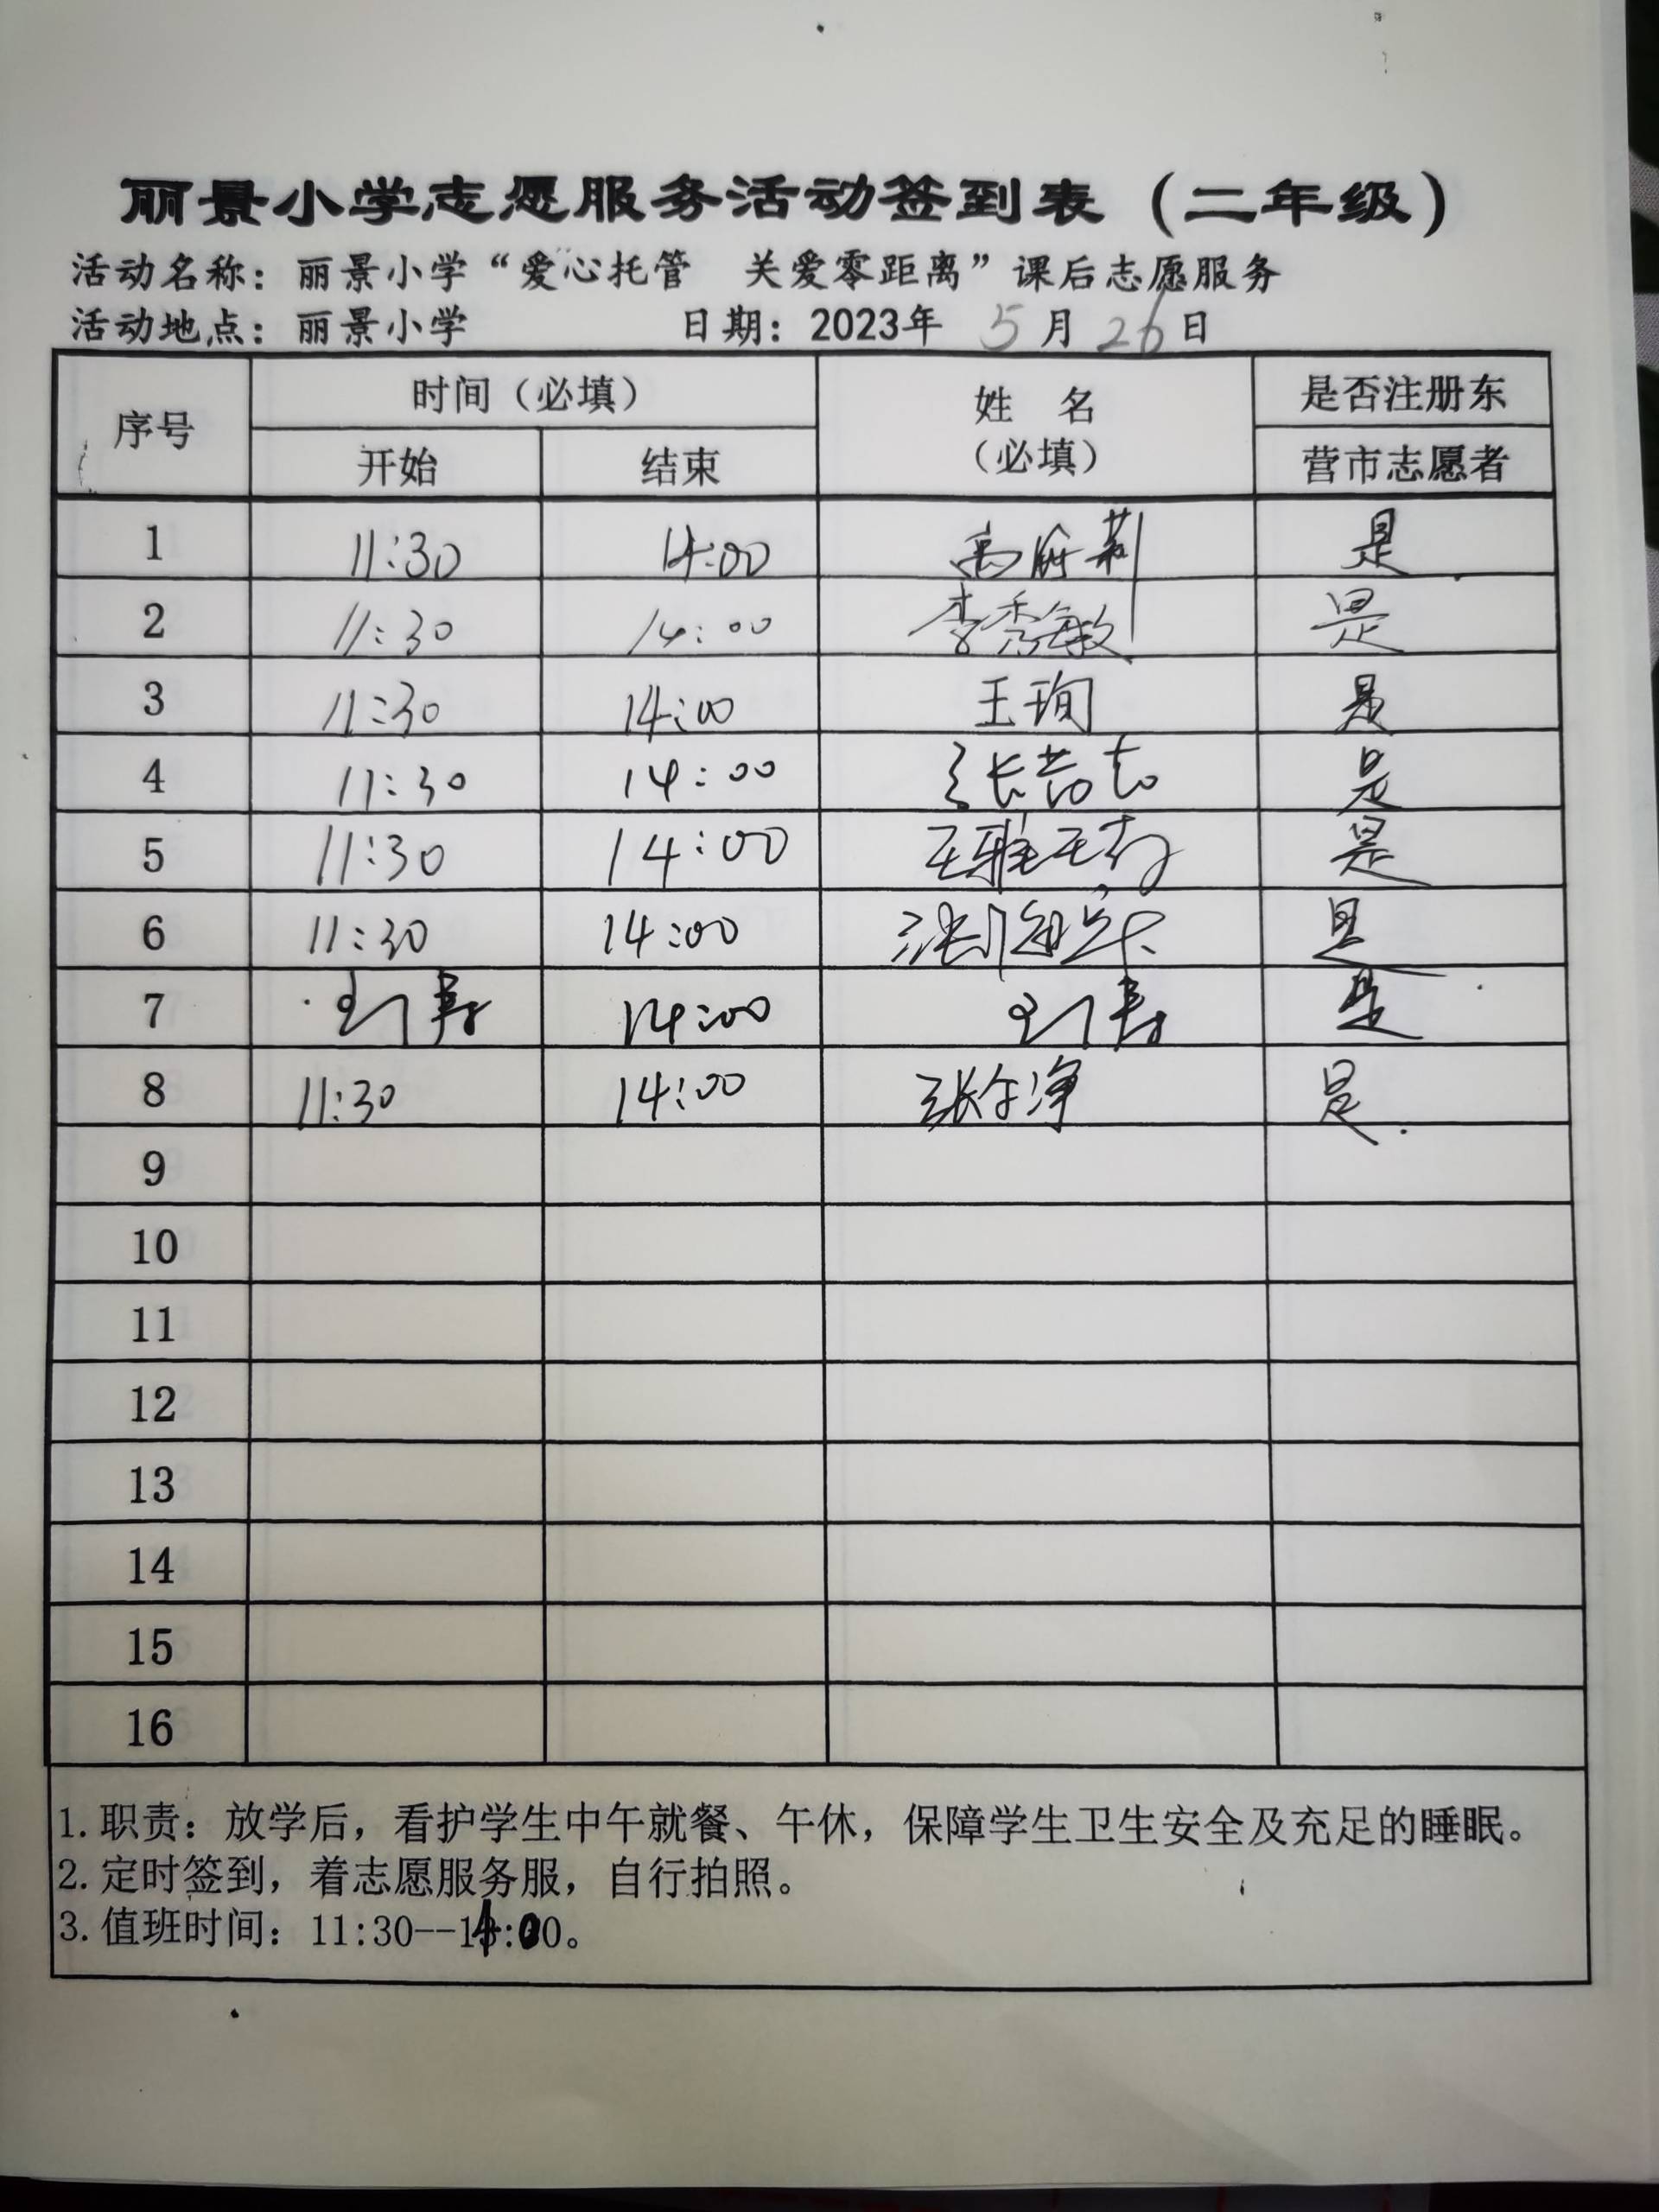 丽景小学志愿服务活动签到表（二年级）
活动名称：丽景小学“爱心托管 关爱零距离”课后志愿服务
活动地点：丽景小学 日期：2023年 5月 26日
序号 时间（必填） 姓 名（必填） 是否注册东营市志愿者
开始 结束
1 11:30 14:00 是
2 11:30 14:00 李秀敏 是
3 11:30 14:00 王珣 是
4 11:30 14:00 是
5 11:30 14:00 是
6 11:30 14:00 是
7 14:00 是
8 11:30 14:00 是
9
10
11
12
13
14
15
16
1.职责：放学后，看护学生中午就餐、午休，保障学生卫生安全及充足的睡眠。
2.定时签到，着志愿服务服，自行拍照。
3.值班时间：11:30--14:00。